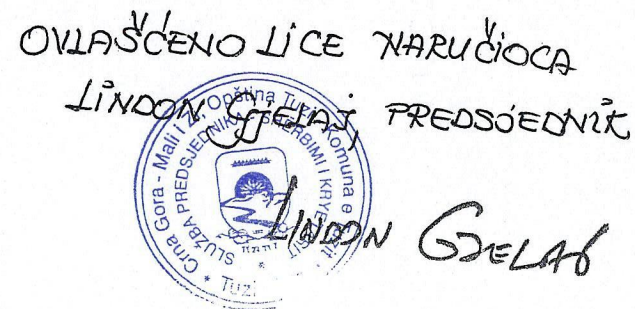 OVLAŠĆENO LICE NARUČIOCA
LINDON GJELAJ, PREDSJEDNIK
Crna Gora - Mali i Zi, Opština Tuzi, Komuna e Tuzit
SLUŽBA PREDSJEDNIKA SHËRBIMI I KRYETARIT
* TUZI
LINDON GJELAJ